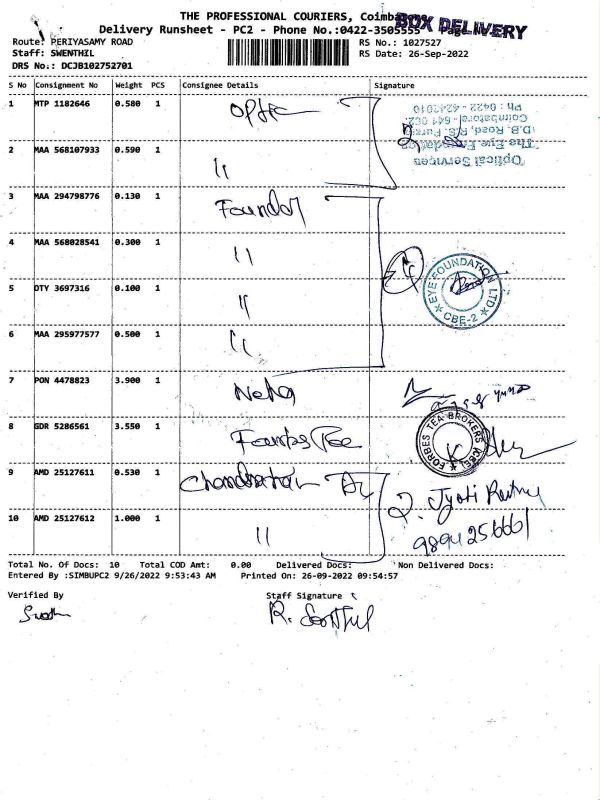 THE PROFESSIONAL COURIERS, Coimba
BOX DELIVERY
Delivery Runsheet - PC2 - Phone No.:0422-3505555 Page No
Route: PERIYASAMY ROAD RS No.: 1027527
Staff: SWENTHIL RS Date: 26-Sep-2022
DRS No.: DCJB102752701
S No Consignment No Weight PCS Consignee Details Signature
1 MTP 1182646 0.580 1
Optical Services
The Eye Foundation
D.B. Road, R.S. Puram
Coimbatore - 641 002.
Ph : 0422 - 4242010
2 MAA 568107933 0.590 1 "
3 MAA 294798776 0.130 1
4 MAA 568028541 0.300 1 "
EYE FOUNDATION LTD
★ CBE-2 ★
5 DTY 3697316 0.100 1 "
6 MAA 295977577 0.500 1 "
7 PON 4478823 3.900 1 Neha
8 GDR 5286561 3.550 1
FORBES TEA BROKERS (CBE)
9 AMD 25127611 0.530 1
10 AMD 25127612 1.000 1 "
9894256661
Total No. Of Docs: 10 Total COD Amt: 0.00 Delivered Docs: Non Delivered Docs:
Entered By :SIMBUPC2 9/26/2022 9:53:43 AM Printed On: 26-09-2022 09:54:57
Verified By Staff Signature